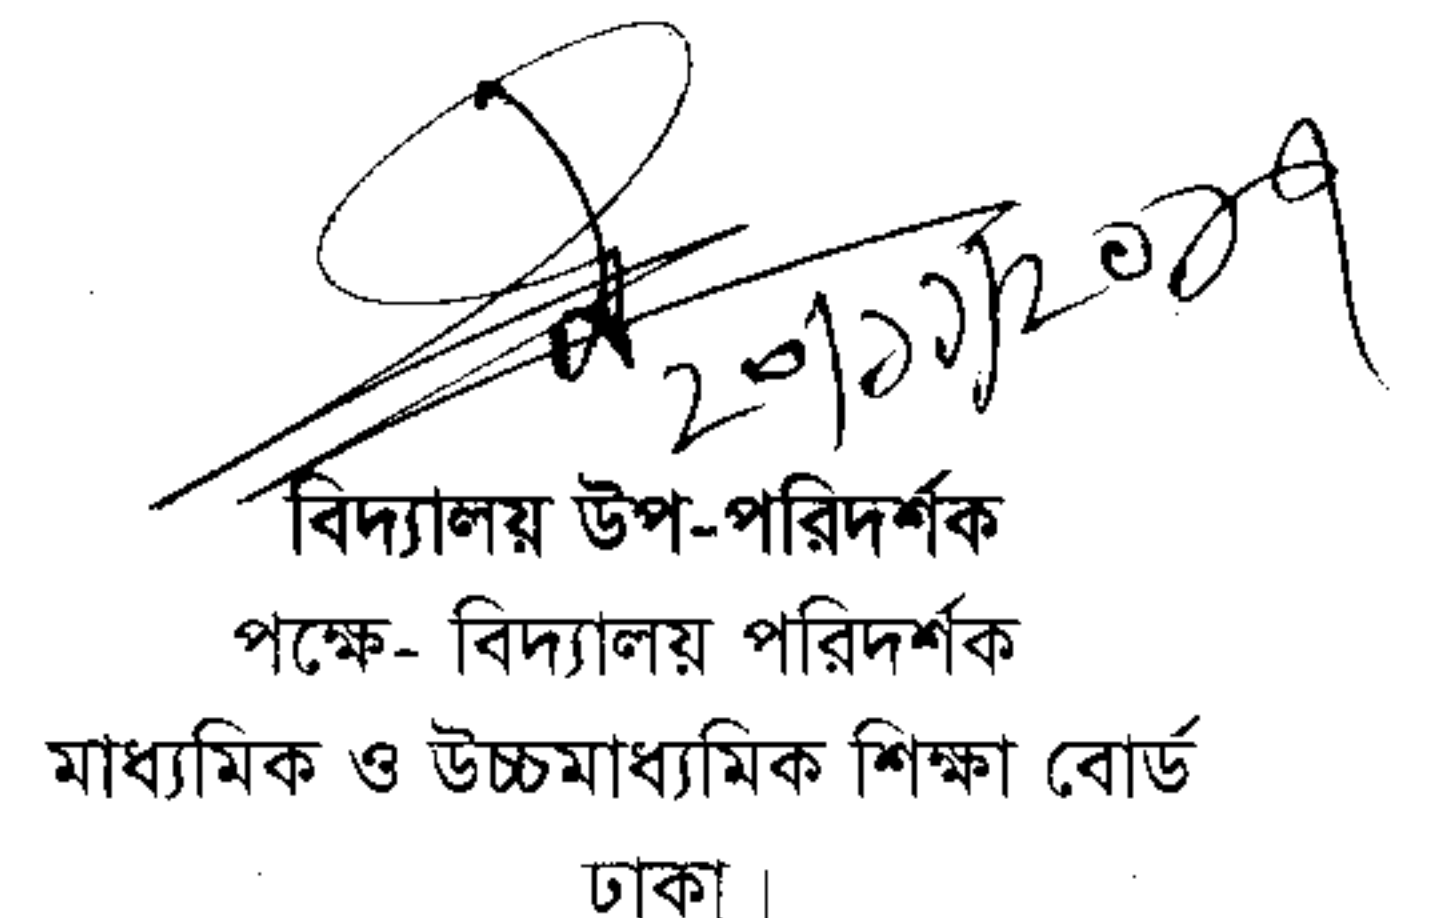 ২০/১১/২০১৭
বিদ্যালয় উপ-পরিদর্শক
পক্ষে- বিদ্যালয় পরিদর্শক
মাধ্যমিক ও উচ্চমাধ্যমিক শিক্ষা বোর্ড
ঢাকা।